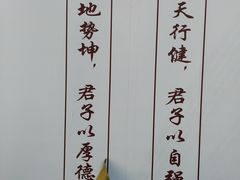 天行健，君子以自强
地势坤，君子以厚德